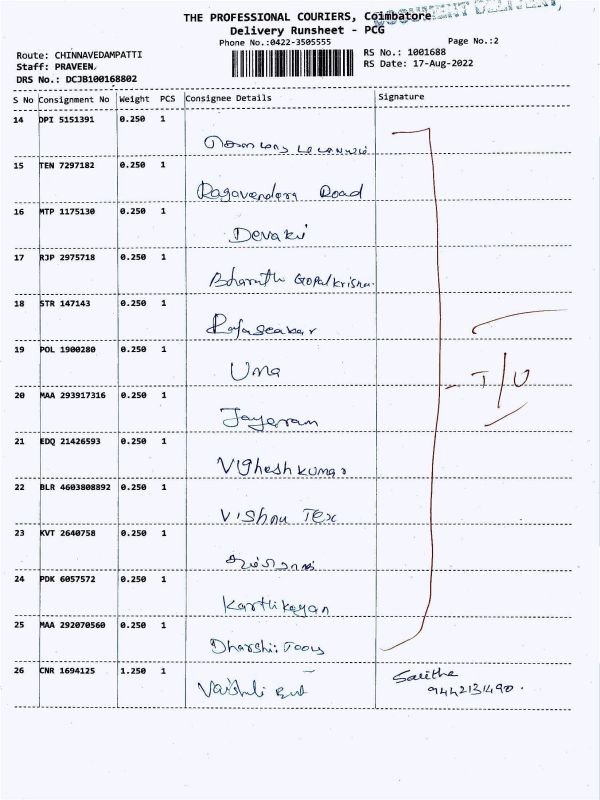 THE PROFESSIONAL COURIERS, Coimbatore
Delivery Runsheet - PCG
Phone No.:0422-3505555
Page No.:2
Route: CHINNAVEDAMPATTI
Staff: PRAVEEN,
DRS No.: DCJB100168802
RS No.: 1001688
RS Date: 17-Aug-2022
S No Consignment No Weight PCS Consignee Details Signature
14 DPI 5151391 0.250 1
15 TEN 7297182 0.250 1
Ragavendara Road
16 MTP 1175130 0.250 1
Devaki
17 RJP 2975718 0.250 1
Bharath Gopalkrishna
18 STR 147143 0.250 1
Rajaseakar
19 POL 1900280 0.250 1
Uma
T/U
20 MAA 293917316 0.250 1
Jayaram
21 EDQ 21426593 0.250 1
Vigheshkumar
22 BLR 4603808892 0.250 1
Vishnu Tex
23 KVT 2640758 0.250 1
24 PDK 6057572 0.250 1
Karthikeyan
25 MAA 292070560 0.250 1
Dharshi: Tools
26 CNR 1694125 1.250 1
Saritha
9442131490.